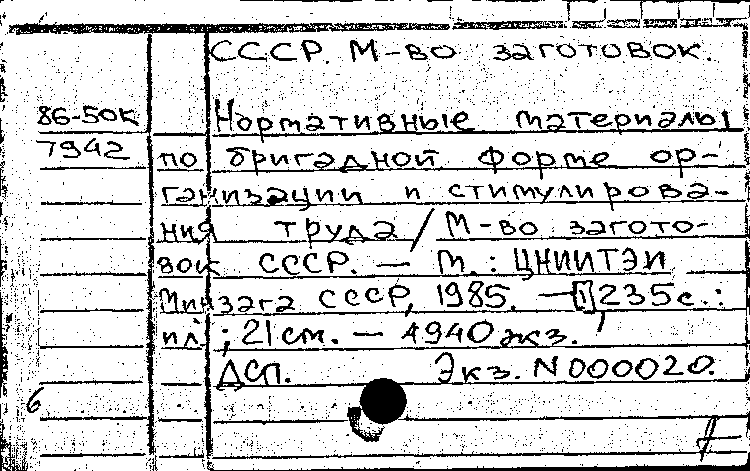 СССР. М-во заготовок.
86-50К
7942
Нормативные материалы
по бригадной форме ор-
ганизации и стимулирова-
ния труда / М-во загото-
вок СССР. — М. : ЦНИИТЭИ
Минзага СССР, 1985. — [1], 235 с. :
ил. ; 21 см. — 4940 экз.
ДСП. Экз. N 000020.
6